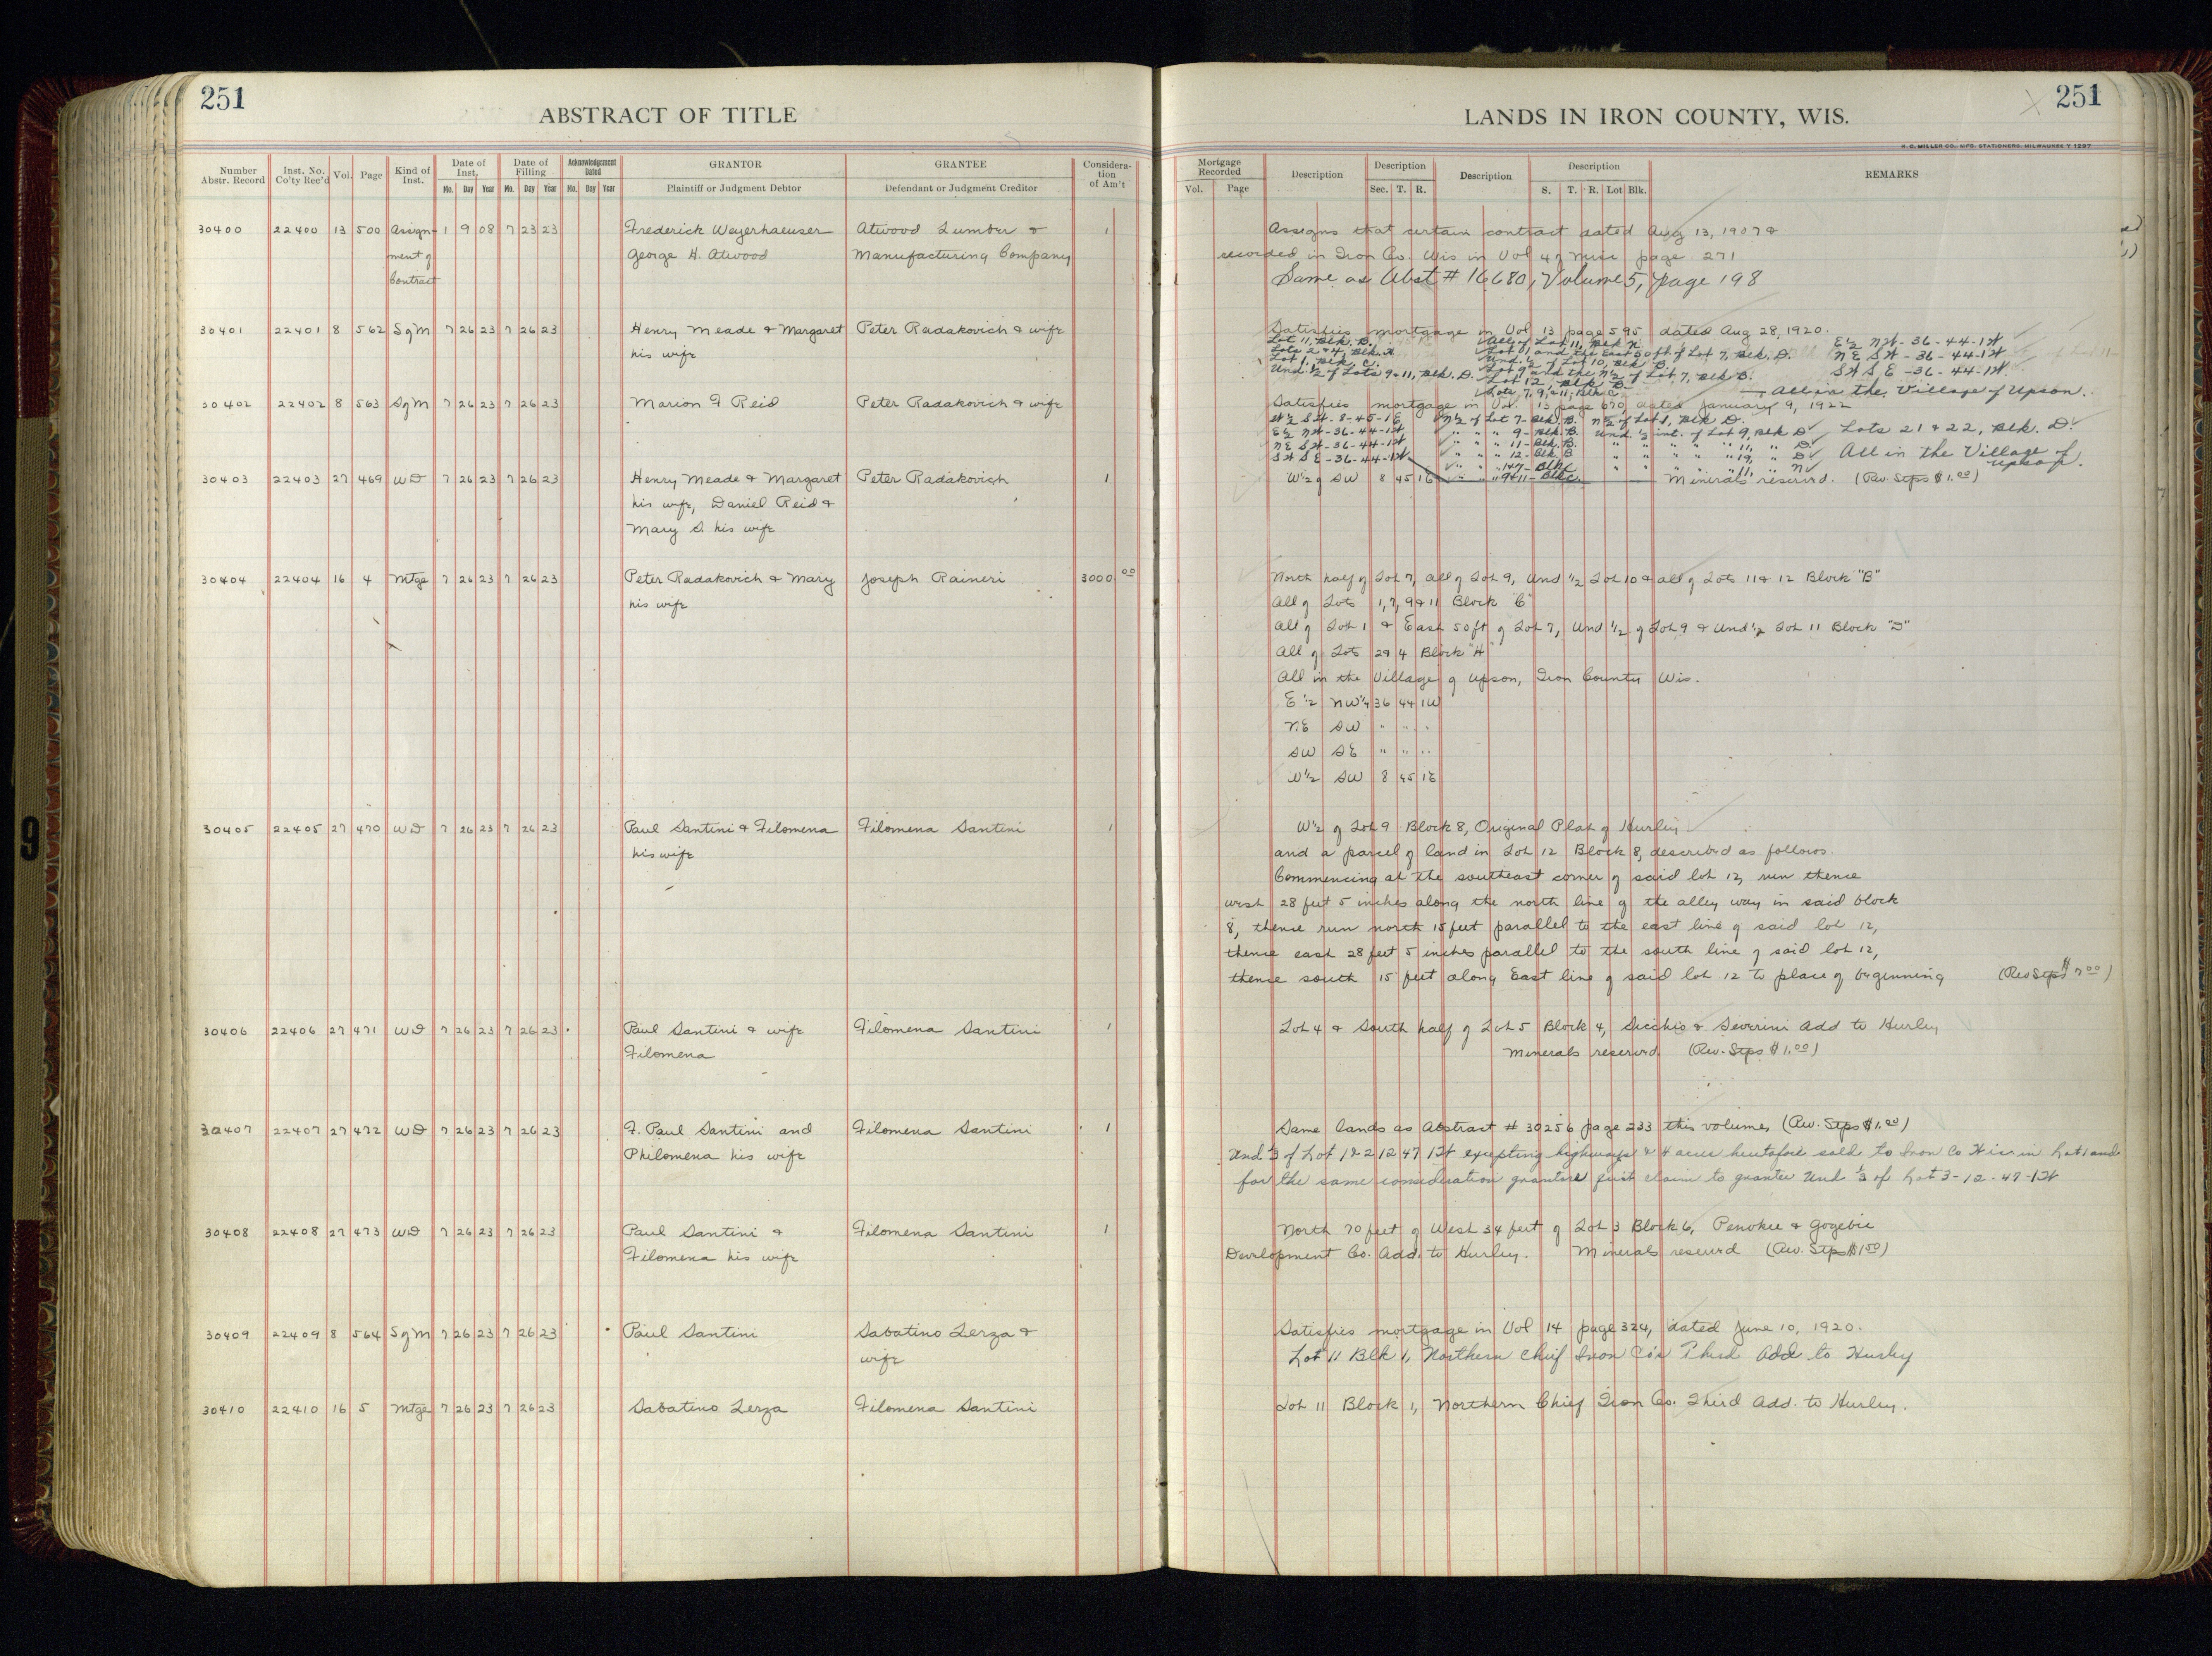 251
ABSTRACT OF TITLE
Number Abstr. Record | Inst. No. Co'ty Rec'd | Vol. | Page | Kind of Inst. | Date of Inst. Mo. Day Year | Date of Filling Mo. Day Year | Acknowledgement Dated Mo. Day Year | GRANTOR Plaintiff or Judgment Debtor | GRANTEE Defendant or Judgment Creditor | Considera-tion of Am't
30400 22400 13 500 Assign- 1 9 08 7 23 23 Frederick Weyerhaeuser Atwood Lumber & 1
ment of George H. Atwood Manufacturing Company
Contract
30401 22401 8 562 S of M 7 26 23 7 26 23 Henry Meade & Margaret Peter Radakovich & wife
his wife
30402 22402 8 563 S of M 7 26 23 7 26 23 Marion F Reid Peter Radakovich & wife
30403 22403 27 469 WD 7 26 23 7 26 23 Henry Meade & Margaret Peter Radakovich 1
his wife, Daniel Reid &
Mary S. his wife
30404 22404 16 4 Mtge 7 26 23 7 26 23 Peter Radakovich & Mary Joseph Raineri 3000 00
his wife
30405 22405 27 470 WD 7 26 23 7 26 23 Paul Santini & Filomena Filomena Santini 1
his wife
30406 22406 27 471 WD 7 26 23 7 26 23 Paul Santini & wife Filomena Santini 1
Filomena
30407 22407 27 472 WD 7 26 23 7 26 23 F. Paul Santini and Filomena Santini 1
Philomena his wife
30408 22408 27 473 WD 7 26 23 7 26 23 Paul Santini & Filomena Santini 1
Filomena his wife
30409 22409 8 564 S of M 7 26 23 7 26 23 Paul Santini Sabatino Lerza &
wife
30410 22410 16 5 Mtge 7 26 23 7 26 23 Sabatino Lerza Filomena Santini
251
LANDS IN IRON COUNTY, WIS.
H. C. MILLER CO., MFG. STATIONERS, MILWAUKEE
Mortgage Recorded Vol. Page | Description | Description Sec. T. R. | Description | Description S. T. R. Lot Blk. | REMARKS
Assigns that certain contract dated Aug 13, 1907 &
recorded in Iron Co. Wis in Vol 4 of Misc page 271
Same as Abst # 16680, Volume 5, page 198
Satisfies mortgage in Vol 13 page 595 dated Aug 28, 1920.
Lot 11, Blk. B. All of Lot 11, Blk N. E½ NW - 36-44-1W
Lots 2 & 4, Blk. H. Lot 1 and the East 50 ft of Lot 7, Blk. D. NE SW - 36-44-1W
Lot 1, Blk C. Und. ½ of Lot 10, Blk B. SW SE - 36-44-1W
Und ½ of Lots 9 & 11, Blk. D. Lot 9 and the N½ of Lot 7, Blk B.
Lot 12, Blk B.
Lots 7, 9, & 11, Blk C. All in the Village of Upson.
Satisfies mortgage in Vol. 13 page 670, dated January 9, 1922
W½ SW - 8-45-1E N½ of Lot 7 - Blk. B. N½ of Lot 1, Blk D.
E½ NW - 36-44-1W " " " 9 - Blk. B. Und. ½ int. of Lot 9, Blk D. Lots 21 & 22, Blk. D.
NE SW - 36-44-1W " " " 11 - Blk. B. " " " " " 11, " D
SW SE - 36-44-1W " " " 12 - Blk B " " " " " 19, " D All in the Village of Upson.
" " " 1 & 7 - Blk C " " " " " 11, " N
W½ of SW 8 45 1E " " " 9 & 11 - Blk C. Minerals reserved. (Rev. Stps $1.00)
North half of Lot 7, all of Lot 9, Und ½ Lot 10 & all of Lots 11 & 12 Block "B"
All of Lots 1, 7, 9 & 11 Block "C"
All of Lot 1 & East 50 ft of Lot 7, Und ½ of Lot 9 & Und ½ Lot 11 Block "D"
All of Lots 2 & 4 Block "H"
All in the Village of Upson, Iron County Wis.
E ½ NW¼ 36 44 1W
NE SW " " "
SW SE " " "
W½ SW 8 45 1E
W½ of Lot 9 Block 8, Original Plat of Hurley
and a parcel of land in Lot 12 Block 8, described as follows.
Commencing at the southeast corner of said lot 12, run thence
west 28 feet 5 inches along the north line of the alley way in said block
8, thence run north 15 feet parallel to the east line of said lot 12,
thence east 28 feet 5 inches parallel to the south line of said lot 12,
thence south 15 feet along East line of said lot 12 to place of beginning (Rev Stps $7.00)
Lot 4 & South half of Lot 5 Block 4, Sicchio & Severini Add to Hurley
Minerals reserved. (Rev. Stps $1.00)
Same lands as Abstract # 30256 page 233 this volume, (Rev. Stps $1.00)
Und ⅓ of Lot 1 & 2 12 47 1W excepting highways & 4 acres heretofore sold to Iron Co Wis in Lot 1 and
for the same consideration grantors quit claim to grantee Und ⅓ of Lot 3-12-47-1W
North 70 feet of West 34 feet of Lot 3 Block 6, Penokee & Gogebic
Development Co. Add. to Hurley. Minerals reserved (Rev. Stps $1.50)
Satisfies mortgage in Vol 14 page 324, dated June 10, 1920.
Lot 11 Blk 1, Northern Chief Iron Co's Third Add to Hurley
Lot 11 Block 1, Northern Chief Iron Co. Third Add. to Hurley.
9